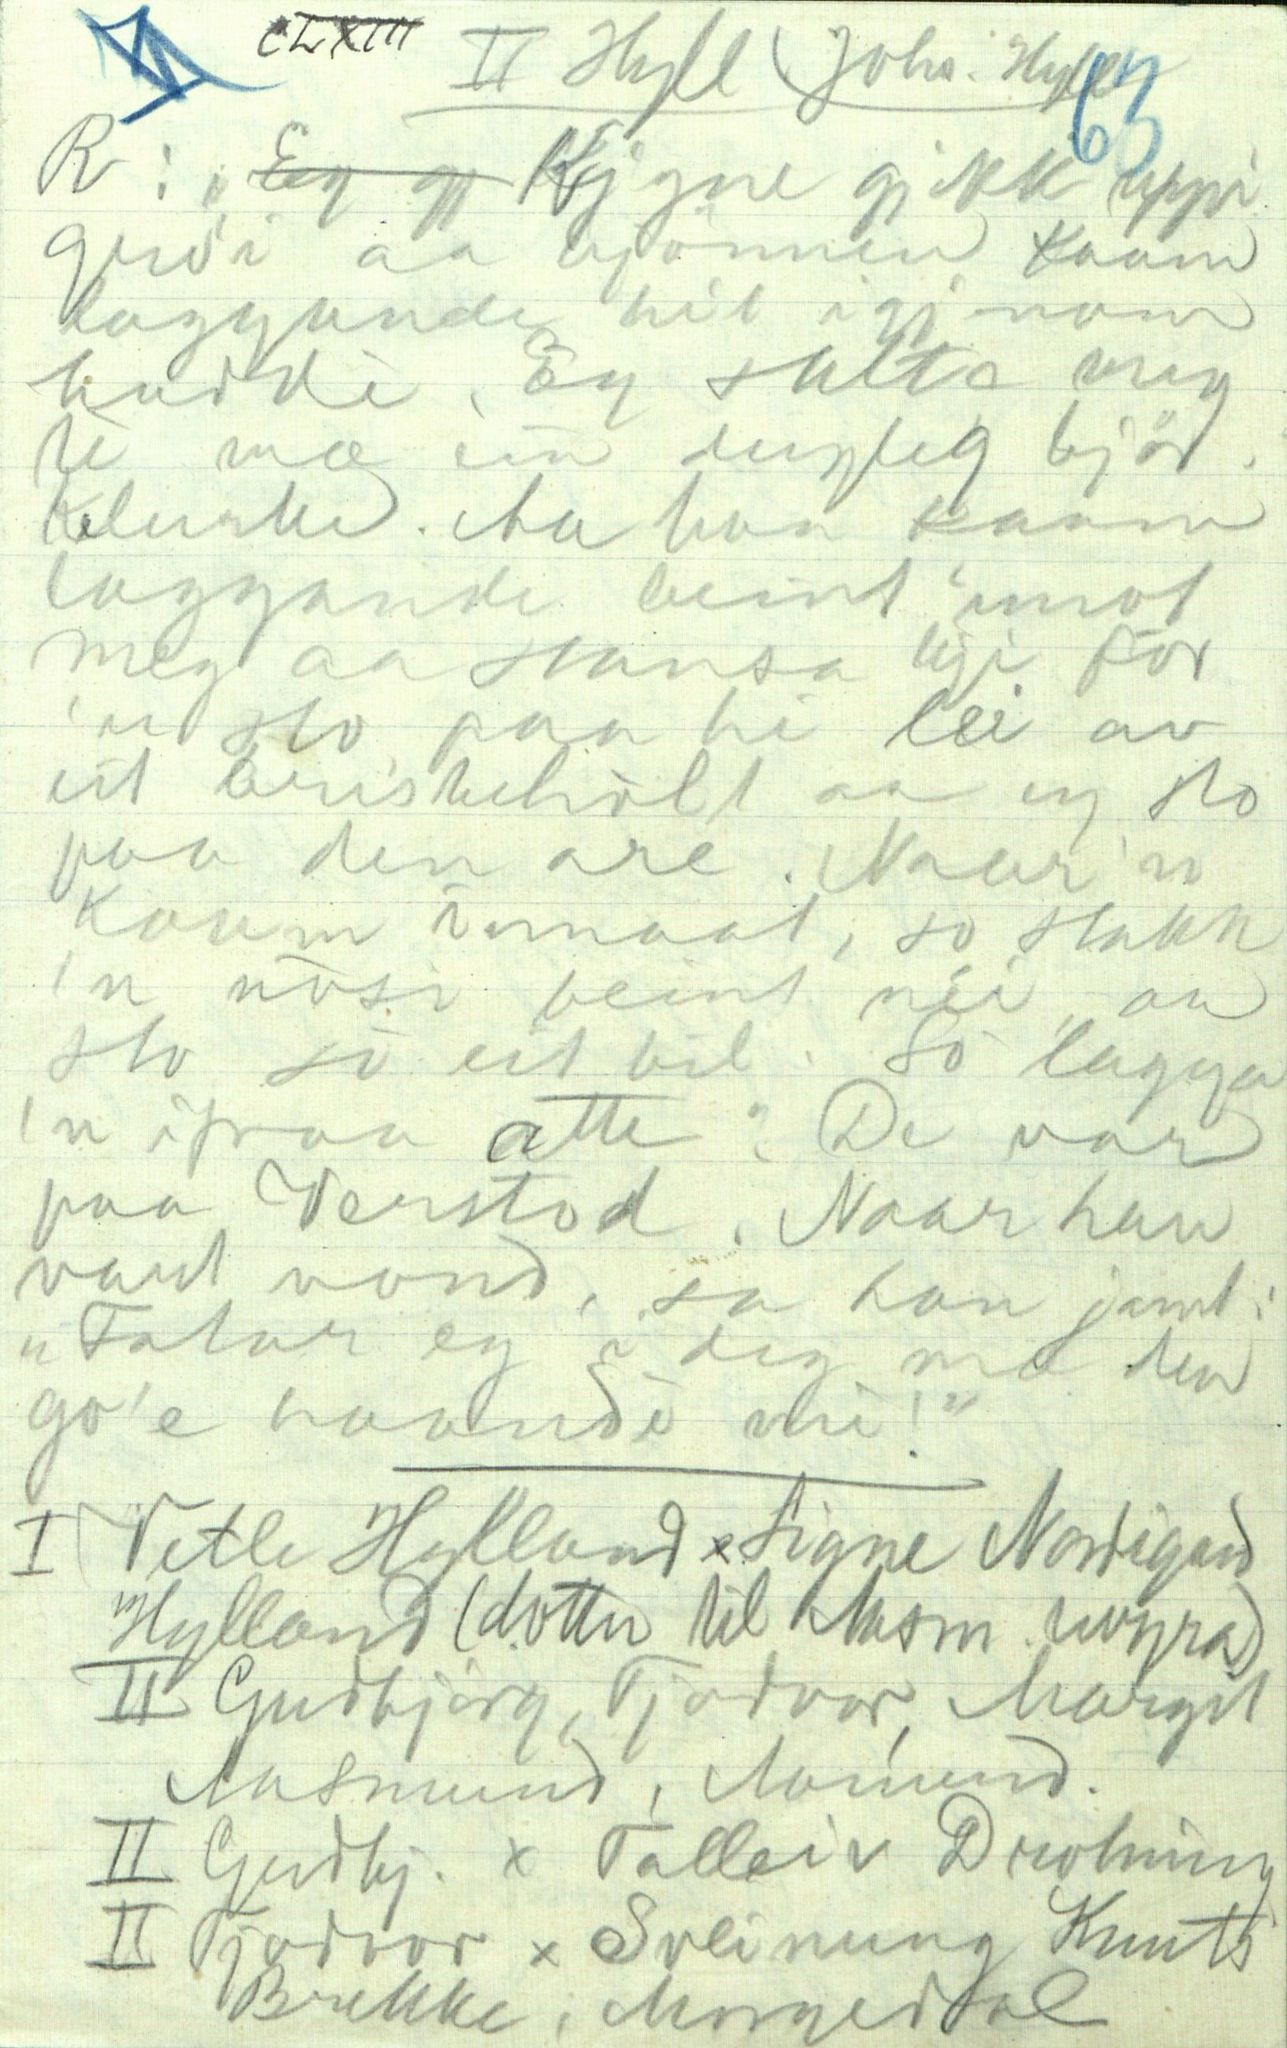 CLXIII II Hyll (Johs. Hyll 63
R: „Eg gj Kjyne gjekk uppi
gerdi aa bjönnen kaam
laggande hit igjenom
hadde. Eg stilte meg
te mæ ein dugleg bjør.
klurke. Aa han kaam
laggande beint imot
meg aa stansa kji för
'n sto paa hi lei av
eit briskeholt aa eg sto
paa den are. Naar 'n
kaam imaat, so stakk
'n nosi beint nei, aa
sto so eit bil. So lagga
'n ifraa atte". De var
paa Verstod. Naar han
vart vond, sa han jamt:
„Tatar eg i deg mæ den
go'e haandi mi!"
I Vetle Hylland x Signe Nordigard
Hylland (dotter til Aasm.
II Gudbjörg, Tjodvor, Margit
Aasmund, Aamund.
II Gudbj. x Talleiv Drotning
II Tjodvor x Sveinung Knuts
Brekke, Morgedal